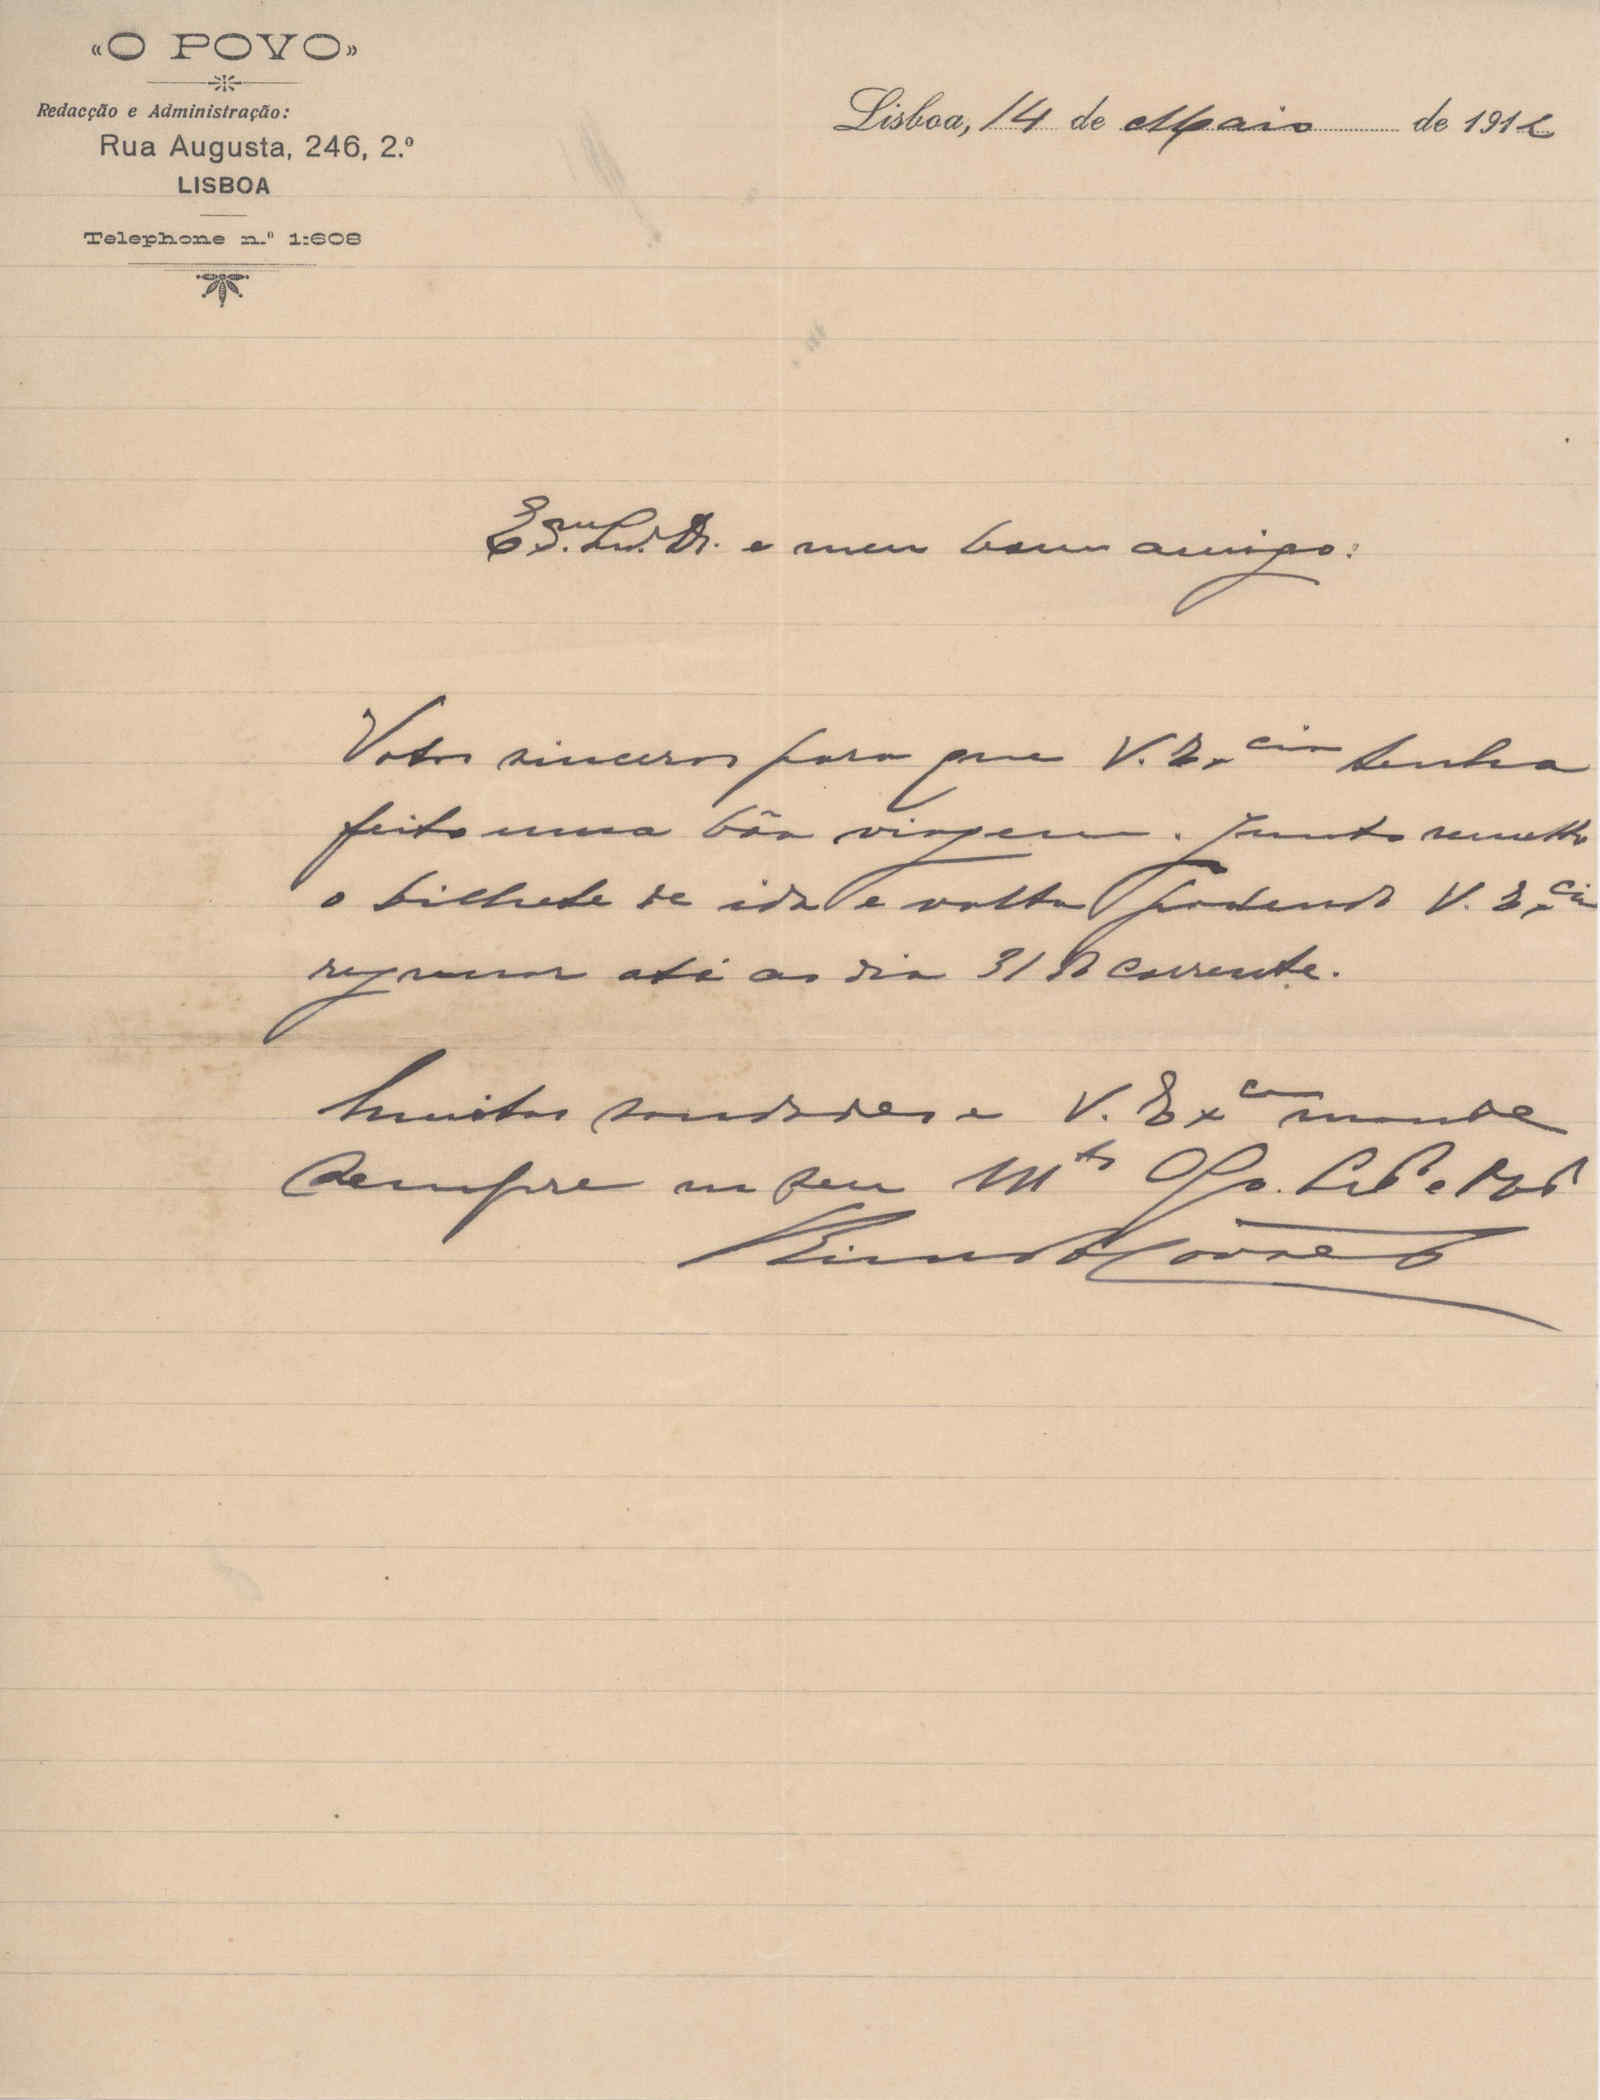 «O POVO»
Redacção e Administração:
Rua Augusta, 246, 2.º
LISBOA
Telephone n.º 1:608
Lisboa, 14 de Maio de 1912
Ex.mo Snr. Dr. e meu bom amigo:
Votos sinceros para que V. Ex.cia tenha
feito uma bôa viagem. Junto remetto
o bilhete de ida e volta podendo V. Ex.cia
regressar até ao dia 31 do corrente.
Muitas saudades e V. Ex.cia mande
sempre um seu Mto Obgo. Crdo e